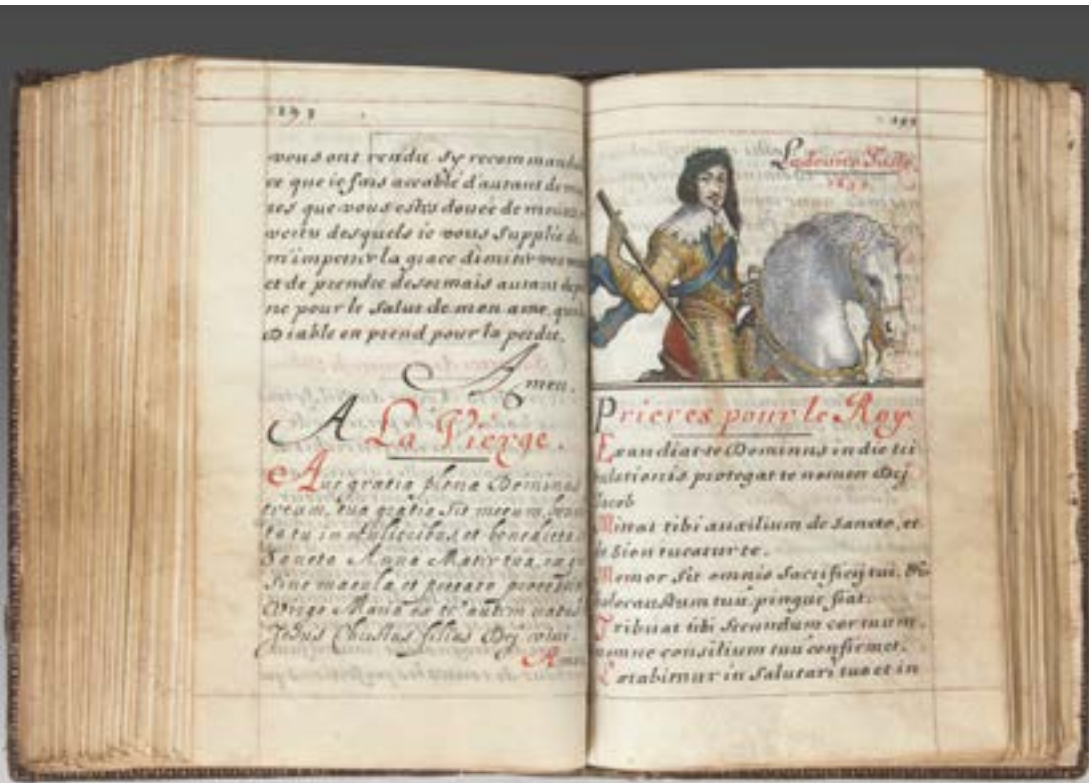 vous ont rendu sy recommanda
ce que ie fais accablé d'autant de
que vous estes douée de
vertu desquels ie vous supplie de
m'impetrer la grace d'imiter
et de prendre desormais autant de
ne pour le salut de mon ame, que
Diable en prend pour la perdre.
Amen.
A La Vierge.
Aue gratia plena Dominus
tecum, tua gratia sit mecum,
ta tu in mulieribus et benedicta
Sancta Anna Mater tua, ex
sine macula et peccato
Virgo Maria ex te autem natus
Jesus Christus filius Dej viui.
Amen
199
Prieres pour le Roy
Exaudiat te Dominus in die tri
bulationis protegat te nomen Dej
Jacob
Mittat tibi auxilium de sancto, et
de Sion tueatur te.
Memor sit omnis sacrificij tui,
holocaustum tuū pingue fiat.
Tribuat tibi secundum cor tuum,
omne consilium tuū confirmet.
Lætabimur in salutari tuo et in